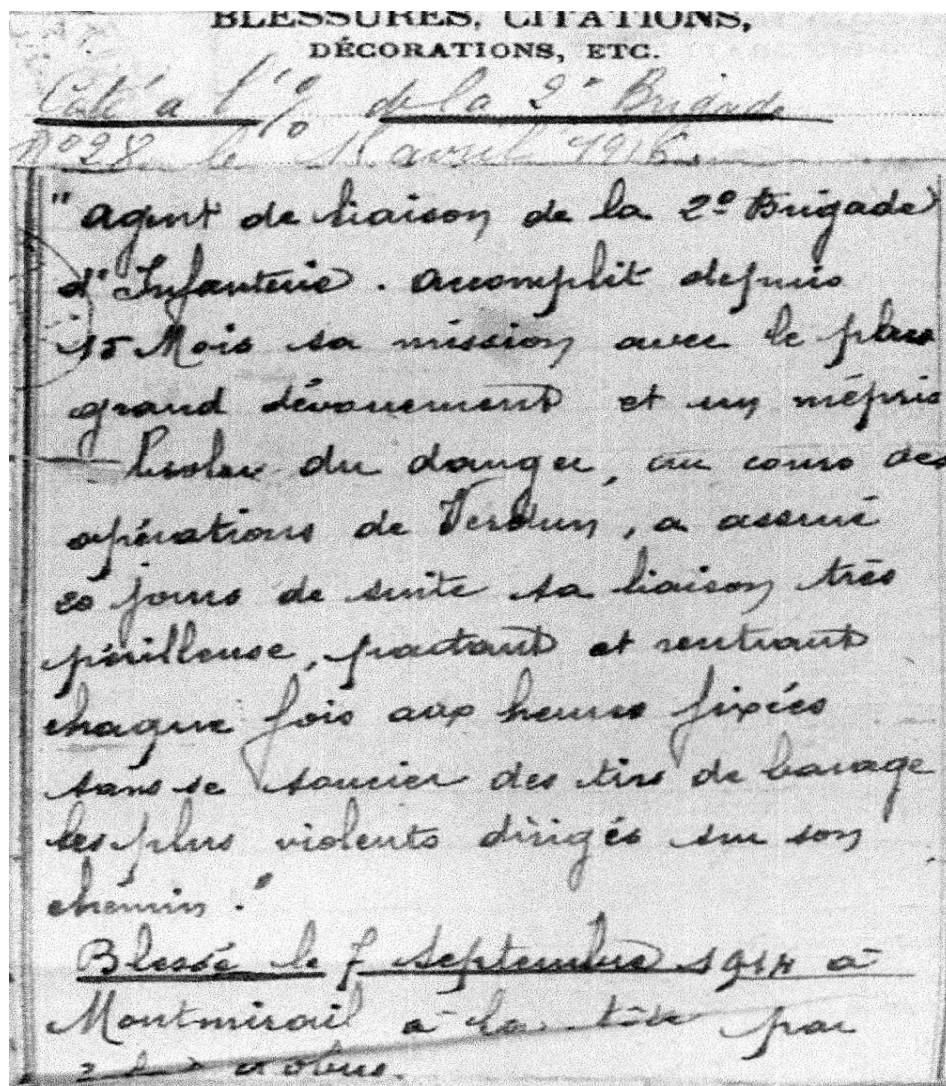 BLESSURES, CITATIONS,
DÉCORATIONS, ETC.
Cité à l'o/o de la 2e Brigade
n° 28 le avril 1916.
"Agent de liaison de la 2e Brigade
d'Infanterie. Accomplit depuis
15 Mois sa mission avec le plus
grand dévouement et un mépris
du danger, au cours des
opérations de Verdun, a assuré
20 jours de suite sa liaison très
périlleuse, partant et rentrant
chaque fois aux heures fixées
sans se soucier des tirs de barage
les plus violents dirigés sur son
chemin."
Blessé le 7 Septembre 1914 à
Montmirail à la tête par
obus.